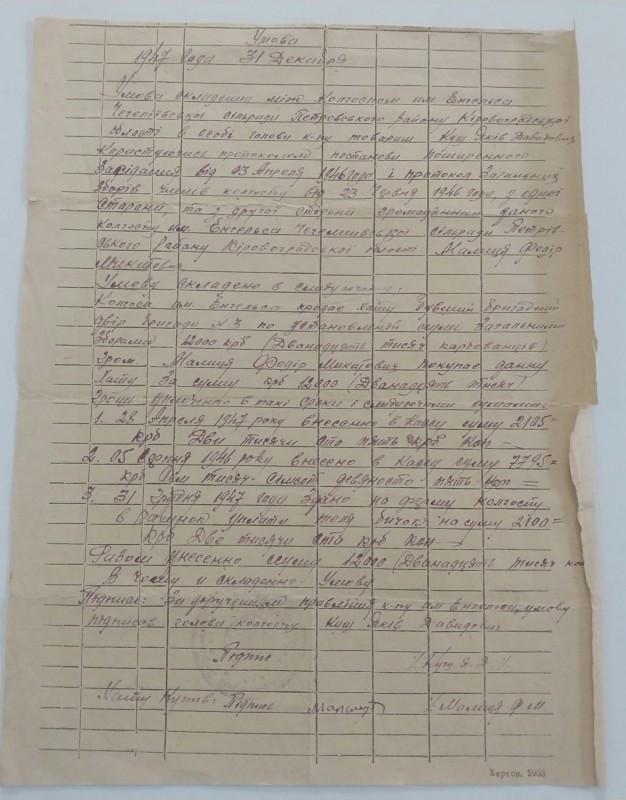 Умова
1947 года 31 Декабря
Умова складена між Колгоспом им. Енгельса
сільради Петровського району Кіровоградської
області в особі голови к-пу товариш Кущ Яків Давидович
протоколом постанови поширенного
Засідания від 03 Апреля 1946 году і протокол Загальних
Зборів членів колгоспу від 23 Червня 1946 года, з одної
сторани, та з другої сторони громадянином даного
колгоспу им. Енгельса сільради Петрів-
ського району Кіровоградської області Малиця Федір
Микитович
Умову складено в слидуючому:
им. Енгельса продає хату бувший бригадний
двір бригади №3 по установленій сумі Загальними
Зборами 12000 крб (Дванадцять тисяч карбованців)
Гром. Малиця Федір Микитович покупає данну
Хату За сумму крб 12000 (Дванадцять тисяч)
Гроши уплоченно в такі сроки і слидуючими сумами
1. 28 Апреля 1947 року внесенно в Кассу суму 2105=
крб Дви тисячи сто пять крб коп =
2. 05 Серпня 1946 року внесено в кассу суму 7795=
крб Сім тисяч семсот девяносто пять коп =
3. 31 Грудня 1947 году Здано на ферму колгоспу
в рахунок уплати бичок на суму 2100=
крб Дві тисячи ста крб коп
Разом внесенно ссуму 12000 (Дванадцять тисяч коп
В чому и складенно Умову
Підписав: За дорученням правління к-пу им Енгельса, умову
підписав голова колгоспу Кущ Яків Давидович
Підпис / Кущ Я. Д. /
Хату Купив: Підпис / Малиця Ф М
Херсон, 1903